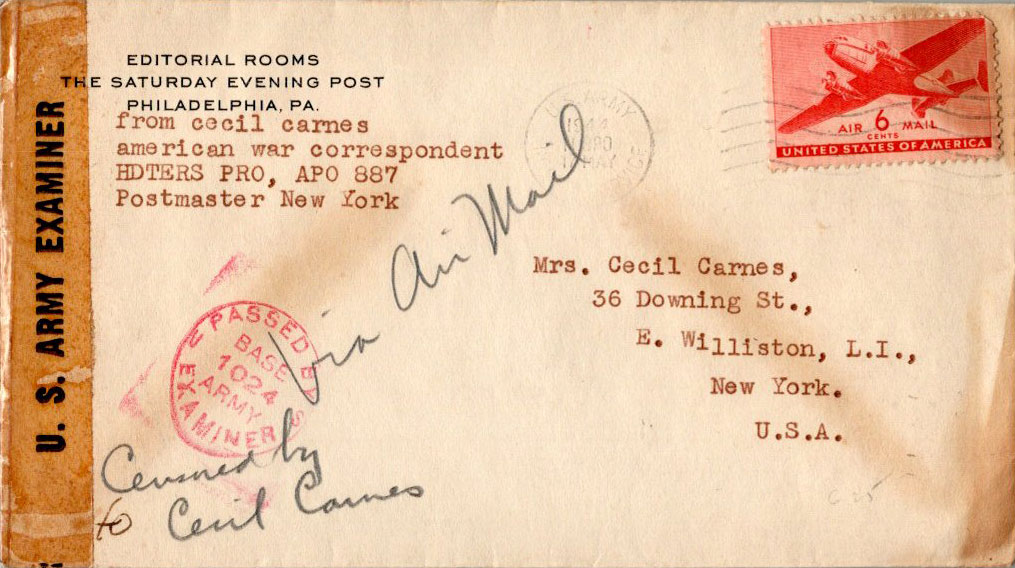 U. S. ARMY EXAMINER
EDITORIAL ROOMS
THE SATURDAY EVENING POST
PHILADELPHIA, PA.
from cecil carnes
american war correspondent
HDTERS PRO, APO 887
Postmaster New York
U.S. ARMY
APO
AIR 6 MAIL
CENTS
UNITED STATES OF AMERICA
Via Air Mail
Mrs. Cecil Carnes,
36 Downing St.,
E. Williston, L.I.,
New York.
U.S.A.
PASSED BY
BASE
1024
ARMY
EXAMINER
Censored by
to Cecil Carnes